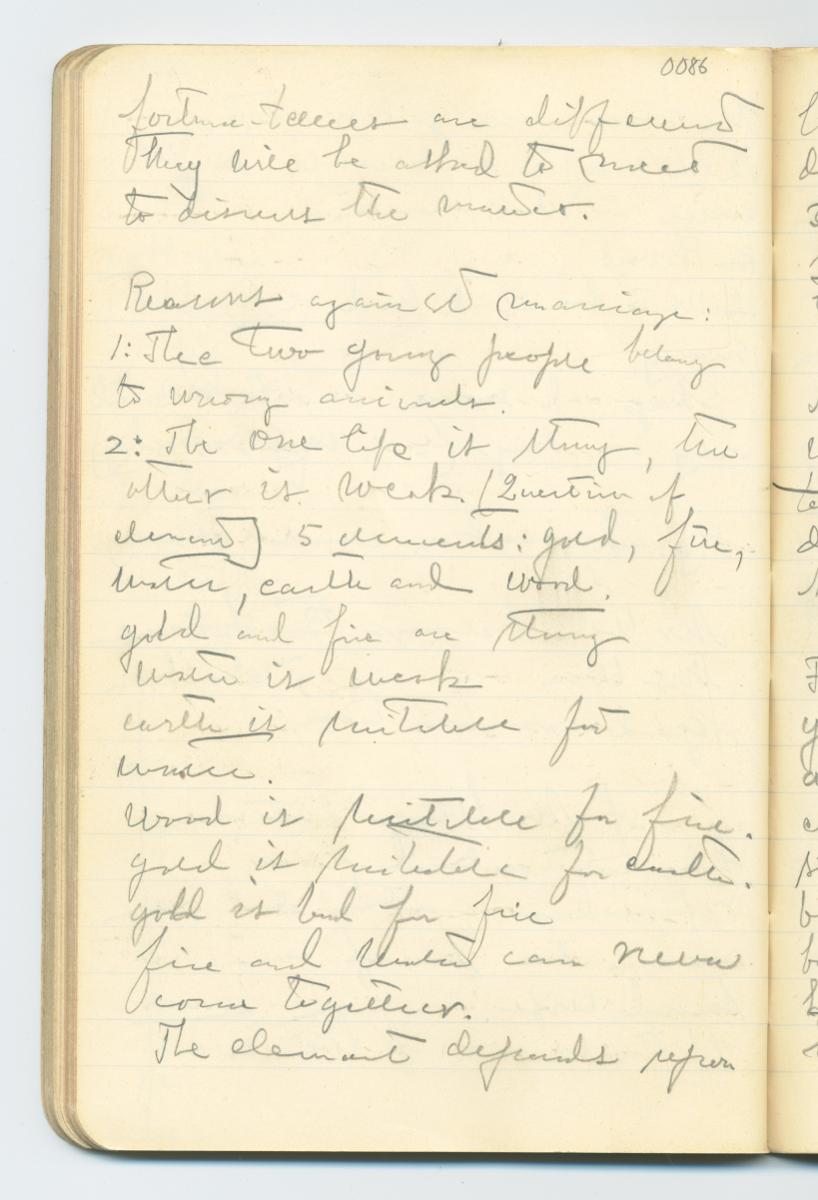 0086
fortune-tellers are different
They will be asked to meet
to discuss the matter.
Reasons against marriage:
1: The two young people belong
to wrong animals.
2: The one life is strong, the
other is weak. [Question of
element] 5 elements: gold, fire,
water, earth and wood.
gold and fire are strong
water is weak
earth is suitable for
water.
wood is suitable for fire.
gold is suitable for earth.
gold is bad for fire
fire and water can never
come together.
The element depends upon